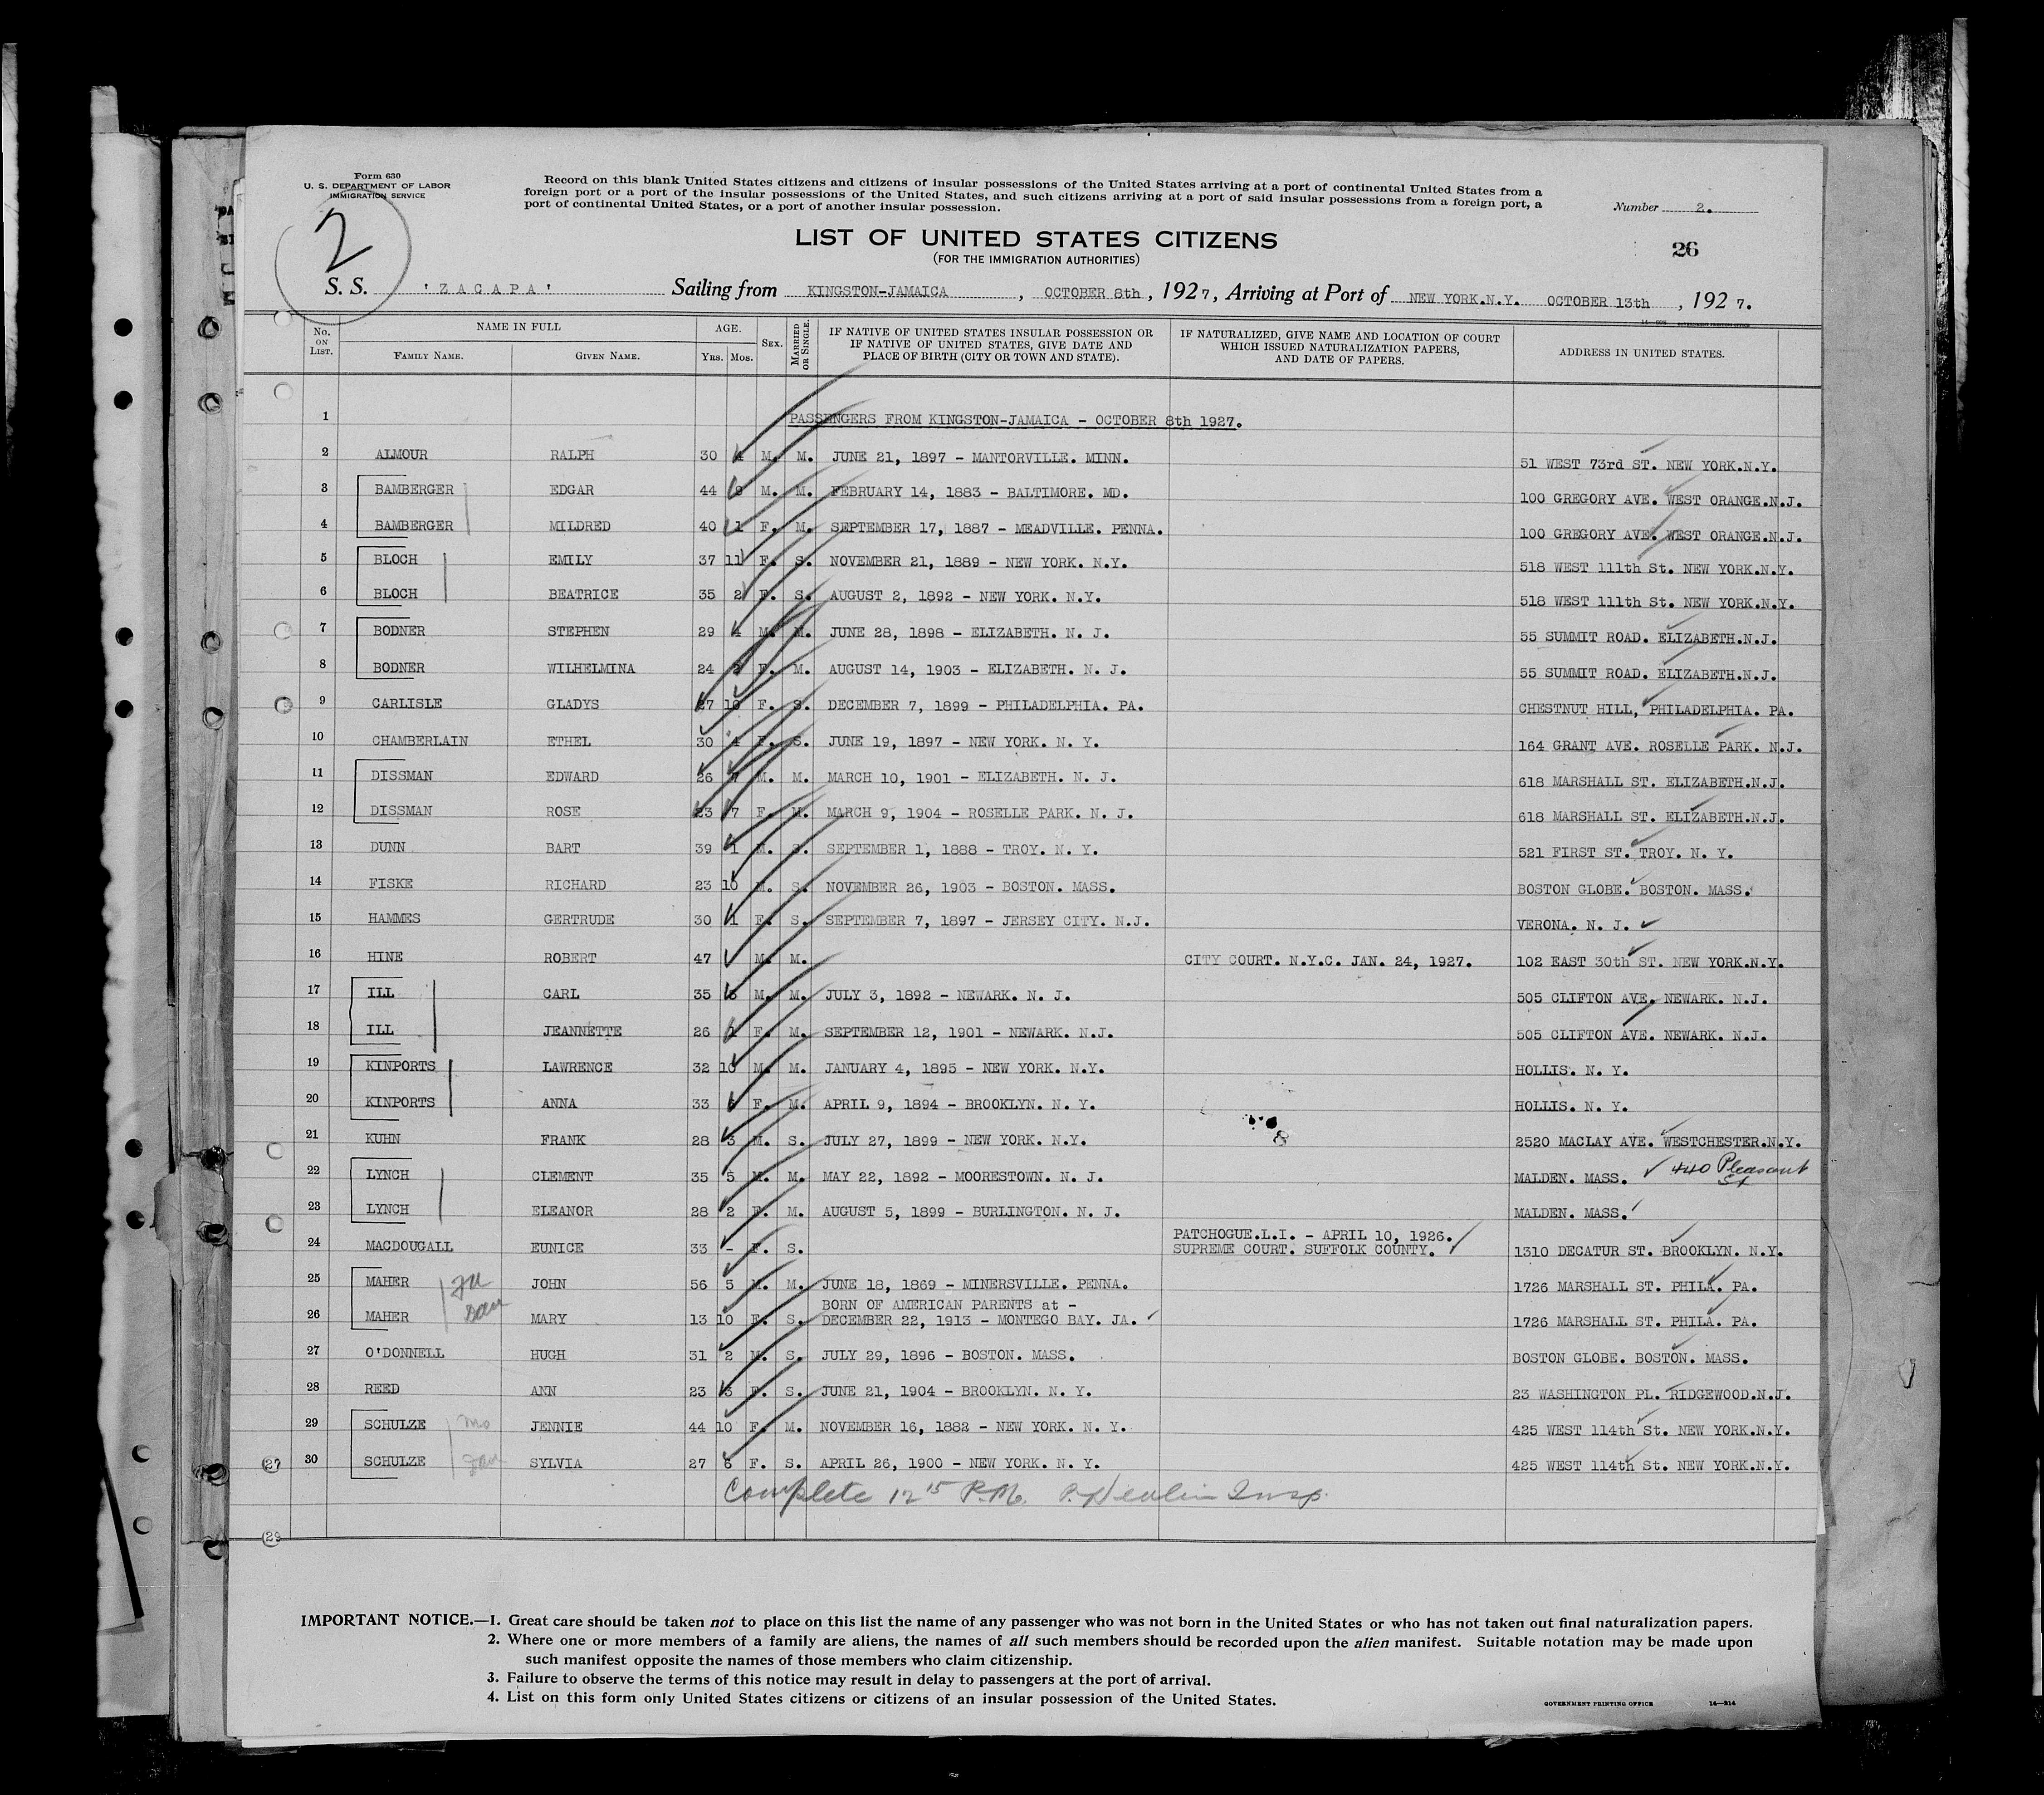 Form 630
U. S. DEPARTMENT OF LABOR
IMMIGRATION SERVICE
2
Record on this blank United States citizens and citizens of insular possessions of the United States arriving at a port of continental United States from a
foreign port or a port of the insular possessions of the United States, and such citizens arriving at a port of said insular possessions from a foreign port, a
port of continental United States, or a port of another insular possession.
Number 2.
LIST OF UNITED STATES CITIZENS
(FOR THE IMMIGRATION AUTHORITIES)
26
S. S. 'ZACAPA' Sailing from KINGSTON-JAMAICA, OCTOBER 8th, 1927, Arriving at Port of NEW YORK.N.Y. OCTOBER 13th, 1927.
No. ON LIST. NAME IN FULL FAMILY NAME. GIVEN NAME. AGE. YRS. MOS. SEX. MARRIED OR SINGLE. IF NATIVE OF UNITED STATES INSULAR POSSESSION OR IF NATIVE OF UNITED STATES, GIVE DATE AND PLACE OF BIRTH (CITY OR TOWN AND STATE). IF NATURALIZED, GIVE NAME AND LOCATION OF COURT WHICH ISSUED NATURALIZATION PAPERS, AND DATE OF PAPERS. ADDRESS IN UNITED STATES.
1 PASSENGERS FROM KINGSTON-JAMAICA - OCTOBER 8th 1927.
2 ALMOUR RALPH 30 M. M. JUNE 21, 1897 - MANTORVILLE. MINN. 51 WEST 73rd ST. NEW YORK.N.Y.
3 BAMBERGER EDGAR 44 M. M. FEBRUARY 14, 1883 - BALTIMORE. MD. 100 GREGORY AVE. WEST ORANGE.N.J.
4 BAMBERGER MILDRED 40 1 F. M. SEPTEMBER 17, 1887 - MEADVILLE. PENNA. 100 GREGORY AVE. WEST ORANGE.N.J.
5 BLOCH EMILY 37 11 F. S. NOVEMBER 21, 1889 - NEW YORK. N.Y. 518 WEST 111th St. NEW YORK.N.Y.
6 BLOCH BEATRICE 35 2 F. S. AUGUST 2, 1892 - NEW YORK. N.Y. 518 WEST 111th St. NEW YORK.N.Y.
7 BODNER STEPHEN 29 4 M. M. JUNE 28, 1898 - ELIZABETH. N. J. 55 SUMMIT ROAD. ELIZABETH.N.J.
8 BODNER WILHELMINA 24 F. M. AUGUST 14, 1903 - ELIZABETH. N. J. 55 SUMMIT ROAD. ELIZABETH.N.J.
9 CARLISLE GLADYS 27 10 F. S. DECEMBER 7, 1899 - PHILADELPHIA. PA. CHESTNUT HILL, PHILADELPHIA. PA.
10 CHAMBERLAIN ETHEL 30 4 F. S. JUNE 19, 1897 - NEW YORK. N. Y. 164 GRANT AVE. ROSELLE PARK. N.J.
11 DISSMAN EDWARD 26 7 M. M. MARCH 10, 1901 - ELIZABETH. N. J. 618 MARSHALL ST. ELIZABETH.N.J.
12 DISSMAN ROSE 23 7 F. M. MARCH 9, 1904 - ROSELLE PARK. N. J. 618 MARSHALL ST. ELIZABETH.N.J.
13 DUNN BART 39 1 M. S. SEPTEMBER 1, 1888 - TROY. N. Y. 521 FIRST ST. TROY. N. Y.
14 FISKE RICHARD 23 10 M. S. NOVEMBER 26, 1903 - BOSTON. MASS. BOSTON GLOBE. BOSTON. MASS.
15 HAMMES GERTRUDE 30 1 F. S. SEPTEMBER 7, 1897 - JERSEY CITY. N.J. VERONA. N. J.
16 HINE ROBERT 47 M. M. CITY COURT. N.Y.C. JAN. 24, 1927. 102 EAST 30th ST. NEW YORK.N.Y.
17 ILL CARL 35 3 M. M. JULY 3, 1892 - NEWARK. N. J. 505 CLIFTON AVE. NEWARK. N.J.
18 ILL JEANNETTE 26 1 F. M. SEPTEMBER 12, 1901 - NEWARK. N.J. 505 CLIFTON AVE. NEWARK. N.J.
19 KINPORTS LAWRENCE 32 10 M. M. JANUARY 4, 1895 - NEW YORK. N.Y. HOLLIS. N. Y.
20 KINPORTS ANNA 33 F. M. APRIL 9, 1894 - BROOKLYN. N. Y. HOLLIS. N. Y.
21 KUHN FRANK 28 3 M. S. JULY 27, 1899 - NEW YORK. N.Y. 8 2520 MACLAY AVE. WESTCHESTER.N.Y.
22 LYNCH CLEMENT 35 5 M. M. MAY 22, 1892 - MOORESTOWN. N. J. MALDEN. MASS. 440 Pleasant St
23 LYNCH ELEANOR 28 2 F. M. AUGUST 5, 1899 - BURLINGTON. N. J. MALDEN. MASS.
24 MACDOUGALL EUNICE 33 - F. S. PATCHOGUE.L.I. - APRIL 10, 1926. SUPREME COURT. SUFFOLK COUNTY. 1310 DECATUR ST. BROOKLYN. N.Y.
25 MAHER JOHN 56 5 M. M. JUNE 18, 1869 - MINERSVILLE. PENNA. 1726 MARSHALL ST. PHILA. PA.
26 MAHER Dau MARY 13 10 F. S. BORN OF AMERICAN PARENTS at - DECEMBER 22, 1913 - MONTEGO BAY. JA. 1726 MARSHALL ST. PHILA. PA.
27 O'DONNELL HUGH 31 2 M. S. JULY 29, 1896 - BOSTON. MASS. BOSTON GLOBE. BOSTON. MASS.
28 REED ANN 23 3 F. S. JUNE 21, 1904 - BROOKLYN. N. Y. 23 WASHINGTON PL. RIDGEWOOD.N.J.
29 SCHULZE Mo JENNIE 44 10 F. M. NOVEMBER 16, 1882 - NEW YORK. N. Y. 425 WEST 114th St. NEW YORK.N.Y.
(27) 30 SCHULZE Dau SYLVIA 27 F. S. APRIL 26, 1900 - NEW YORK. N. Y. 425 WEST 114th St. NEW YORK.N.Y.
Complete 12 15 P.M. Insp.
IMPORTANT NOTICE.—1. Great care should be taken not to place on this list the name of any passenger who was not born in the United States or who has not taken out final naturalization papers.
2. Where one or more members of a family are aliens, the names of all such members should be recorded upon the alien manifest. Suitable notation may be made upon
such manifest opposite the names of those members who claim citizenship.
3. Failure to observe the terms of this notice may result in delay to passengers at the port of arrival.
4. List on this form only United States citizens or citizens of an insular possession of the United States.
GOVERNMENT PRINTING OFFICE 14—314